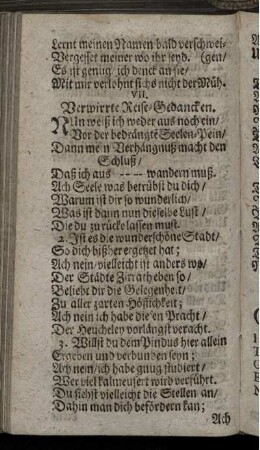 Lernt meinen Namen bald verschwei-
Vergesset meiner wo ihr seyd. (gen/
Es ist genug/ ich denck an sie/
Mit mir verlohnt sichs nicht der Müh.
VII.
Verwirrte Reise-Gedancken.
NUn weiß ich weder aus noch ein/
Vor der bedrängte Seelen-Pein/
Dann mein Verhängnuß macht den
Schluß/
Daß ich aus ---- wandern muß.
Ach Seele was betrübst du dich/
Warum ist dir so wunderlich/
Was ist dann nun dieselbe Lust/
Die du zurücke lassen must.
2. Ist es die wunderschöne Stadt/
So dich bißher ergetzet hat;
Ach nein/ vielleicht ist anders wo/
Der Städte Zierath eben so/
Beliebt dir die Gelegenheit/
Zu aller zarten Höflichkeit;
Ach nein ich habe die en Pracht/
Der Heucheley vorlängst veracht.
3. Willst du dem Pindus hier allein
Ergeben und verbunden seyn;
Ach nein/ ich habe gnug studiert/
Wer viel kalmeusert wird verführt.
Du siehst vielleicht die Stellen an/
Dahin man dich befördern kan;
Ach